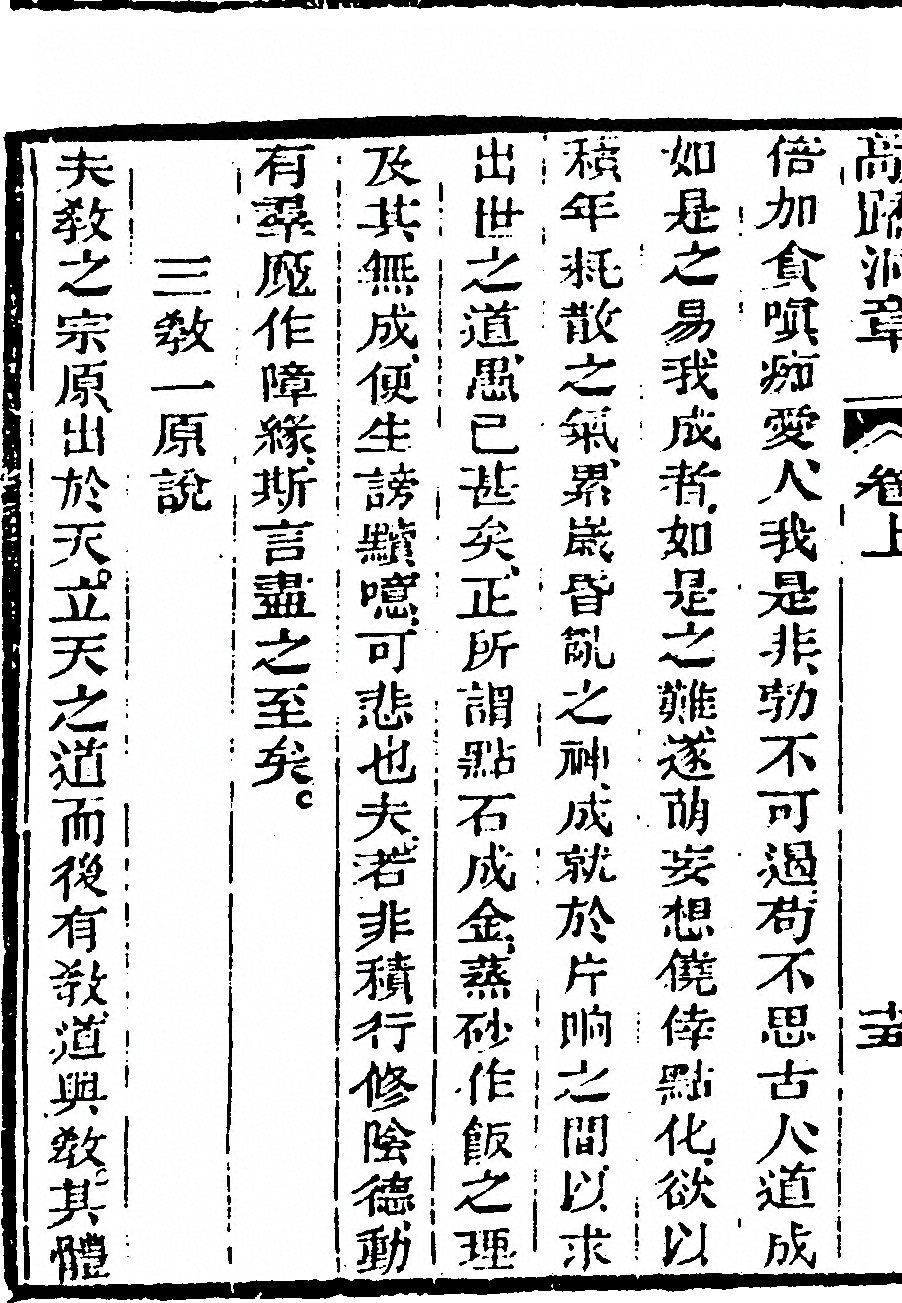 高蹈洞章 卷上 十五
倍加貪嗔痴愛人我是非勃不可遏苟不思古人道成
如是之易我成者如是之難遂萌妄想僥倖點化欲以
積年耗散之氣累歲昏亂之神成就於片晌之間以求
出世之道愚已甚矣正所謂點石成金蒸砂作飯之理
及其無成便生謗黷噫可悲也夫若非積行修陰德動
有羣魔作障緣斯言盡之至矣。
三教一原說
夫教之宗原出於天。立天之道而後有教道與教。其體